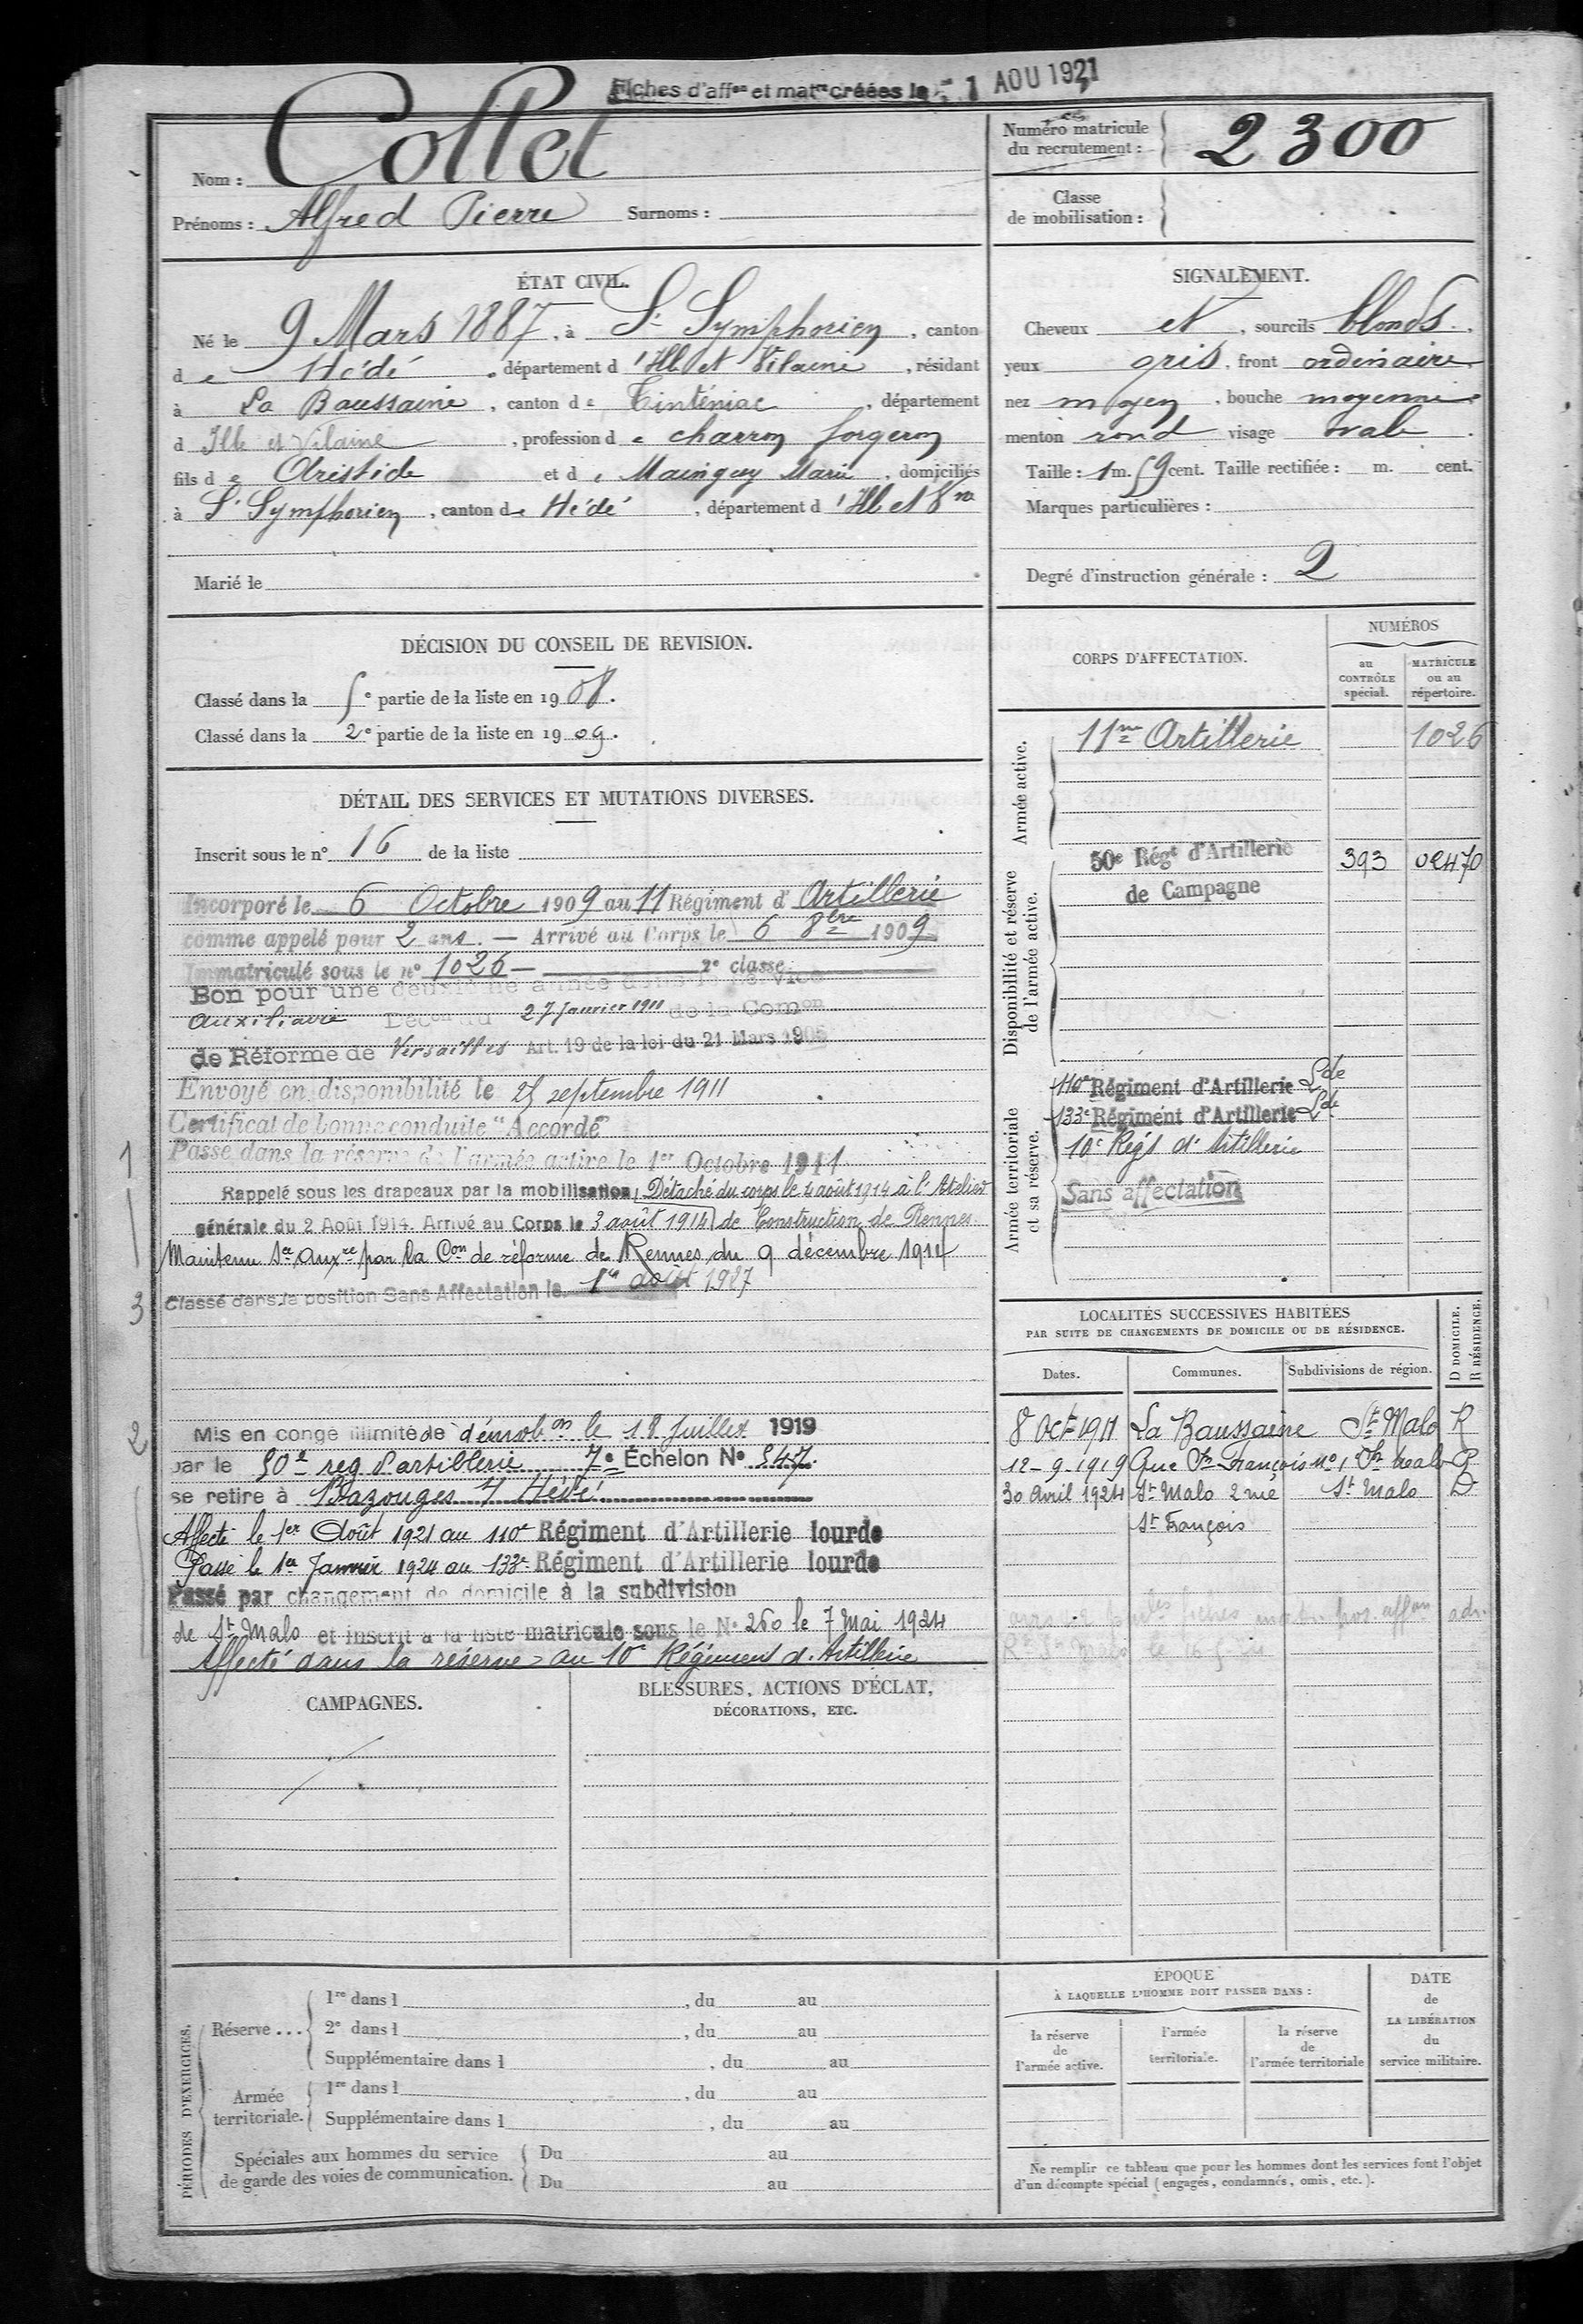 Fiches d'affon et matre créées le 1 AOU 1921
Nom : Collet
Prénoms : Alfred Pierre Surnoms :
Numéro matricule
du recrutement : 2300
Classe
de mobilisation :
ÉTAT CIVIL.
Né le 9 Mars 1887, à St Symphorien, canton
de Hédé, département d'Ille et Vilaine, résidant
à La Baussaine, canton de Tinténiac, département
d Ille et Vilaine, profession de charron forgeron
fils de Aristide et de Mainguy Marie, domiciliés
à St Symphorien, canton de Hédé, département d'Ille et Vne
Marié le
SIGNALEMENT.
Cheveux et, sourcils blonds.
yeux gris, front ordinaire
nez moyen, bouche moyenne
menton rond visage ovale.
Taille : 1 m. 59 cent. Taille rectifiée : m. cent.
Marques particulières :
Degré d'instruction générale : 2
DÉCISION DU CONSEIL DE REVISION.
Classé dans la 5e partie de la liste en 1908.
Classé dans la 2e partie de la liste en 1909.
DÉTAIL DES SERVICES ET MUTATIONS DIVERSES.
Inscrit sous le n° 16 de la liste
Incorporé le 6 Octobre 1909 au 11 Régiment d'Artillerie
comme appelé pour 2 ans. — Arrivé au Corps le 6 8bre 1909
Immatriculé sous le n° 1026 — 2e classe
Bon pour une deuxième année dans le service
auxiliaire Décon du 27 Janvier 1911 de la Comon
de Réforme de Versailles Art. 19 de la loi du 21 Mars 1905
Envoyé en disponibilité le 25 septembre 1911
Certificat de bonne conduite "Accordé"
1 Passé dans la réserve de l'armée active le 1er Octobre 1911
Rappelé sous les drapeaux par la mobilisation Détaché du corps le 4 août 1914 à l'Atelier
générale du 2 Août 1914. Arrivé au Corps le 3 août 1914 de Construction de Rennes.
Maintenu Sce Auxre par la Con de réforme de Rennes du 9 décembre 1914
3 Classé dans la position Sans Affectation le 1er août 1927
2 Mis en congé illimité de démobon le 18 Juillet 1919
par le 50e reg d'artillerie 7e Échelon N° 547.
se retire à Bazouges s/ Hédé
Affecté le 1er Août 1921 au 110e Régiment d'Artillerie lourde
Passé le 1er Janvier 1924 au 133e Régiment d'Artillerie lourde
Passé par changement de domicile à la subdivision
de St Malo et inscrit à la liste matricule sous le N° 260 le 7 Mai 1924
Affecté dans la réserve au 10e Régiment d'Artillerie
CORPS D'AFFECTATION.
NUMÉROS
au
CONTRÔLE
spécial.
MATRICULE
ou au
répertoire.
Armée active.
11me Artillerie 1026
Disponibilité et réserve
de l'armée active.
50e Régt d'Artillerie 393 02470
de Campagne
Armée territoriale
et sa réserve.
110e Régiment d'Artillerie Lde
133e Régiment d'Artillerie Lde
10e Régt d'Artillerie
Sans affectation
LOCALITÉS SUCCESSIVES HABITÉES
PAR SUITE DE CHANGEMENTS DE DOMICILE OU DE RÉSIDENCE.
D DOMICILE.
R RÉSIDENCE.
Dates. Communes. Subdivisions de région.
8 Oct 1911 La Baussaine St Malo R
12-9-1919 Rue St François n° 1 St Malo R
30 Avril 1924 St Malo 2 rue St Malo D
St François
CAMPAGNES.
BLESSURES, ACTIONS D'ÉCLAT,
DÉCORATIONS, ETC.
PÉRIODES D'EXERCICES.
Réserve ...
1re dans l , du au
2e dans l , du au
Supplémentaire dans l , du au
Armée
territoriale.
1re dans l , du au
Supplémentaire dans l , du au
Spéciales aux hommes du service
de garde des voies de communication.
Du au
Du au
ÉPOQUE
À LAQUELLE L'HOMME DOIT PASSER DANS :
la réserve
de
l'armée active.
l'armée
territoriale.
la réserve
de
l'armée territoriale
DATE
de
LA LIBÉRATION
du
service militaire.
Ne remplir ce tableau que pour les hommes dont les services font l'objet
d'un décompte spécial (engagés, condamnés, omis, etc.).